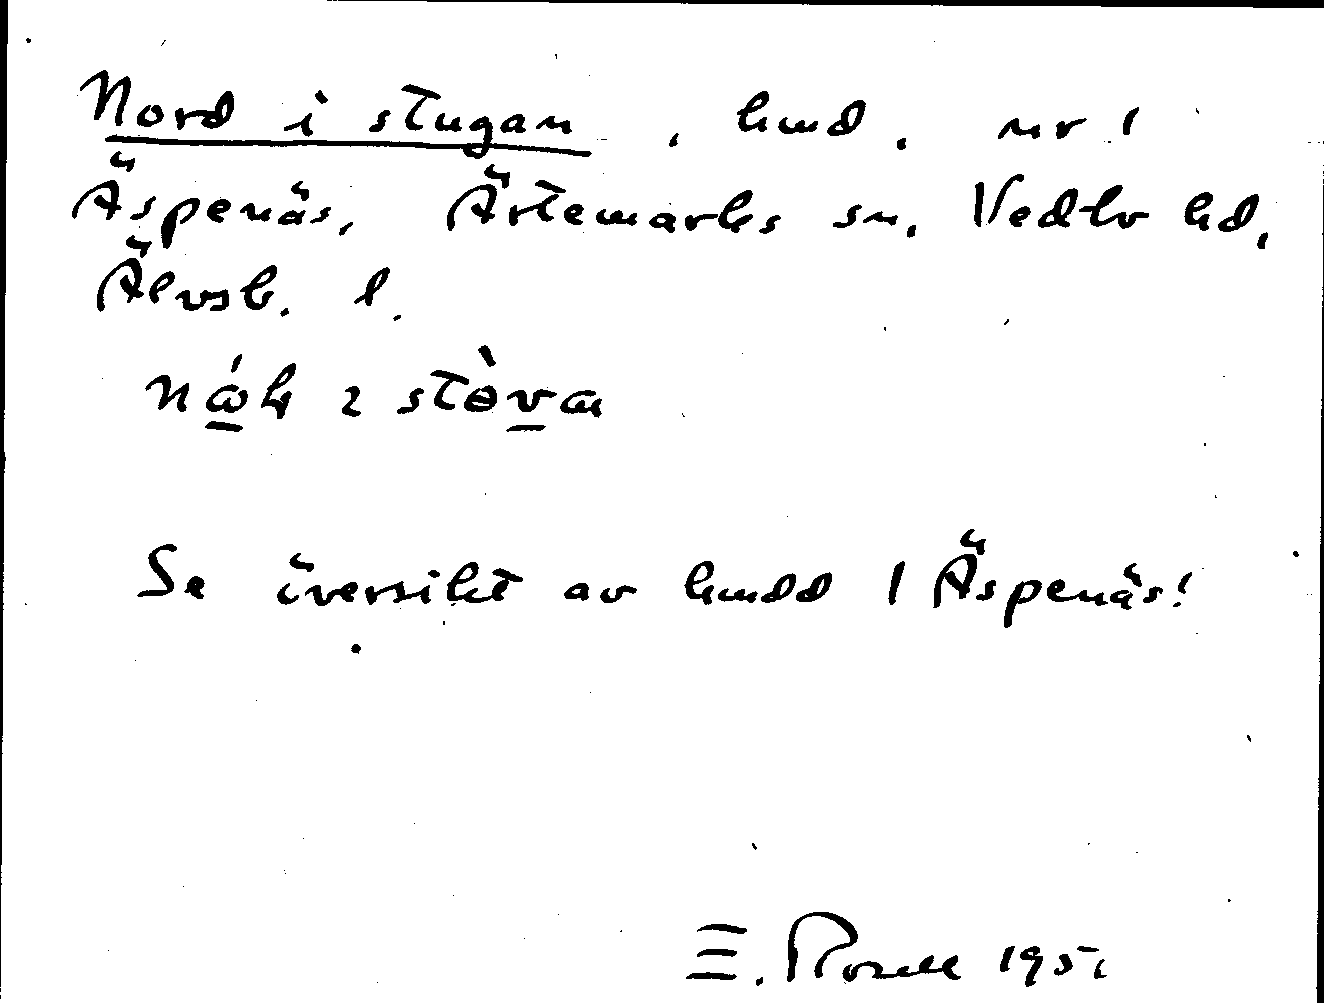 Nord i stugan, hmd. nr 1
Äspenäs, Ärtemarks sn, Vedbo hd,
Älvsb. l.
stòvan
Se översikt av hmdd 1 Äspenäs!
E. Rosell 1951